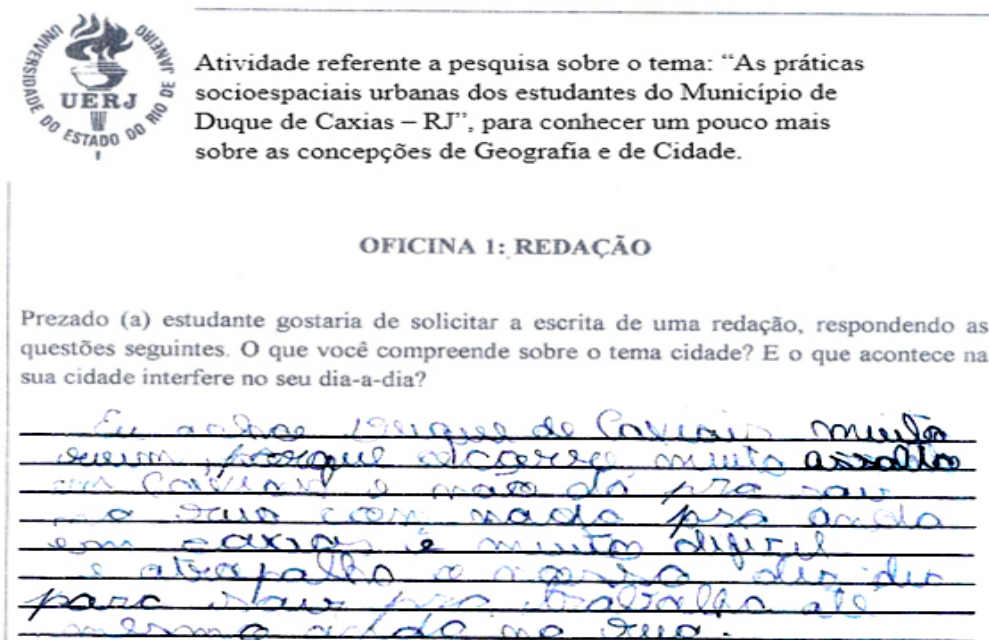 UNIVERSIDADE DO ESTADO DO RIO DE JANEIRO
UERJ
Atividade referente a pesquisa sobre o tema: “As práticas
socioespaciais urbanas dos estudantes do Município de
Duque de Caxias – RJ”, para conhecer um pouco mais
sobre as concepções de Geografia e de Cidade.
OFICINA 1: REDAÇÃO
Prezado (a) estudante gostaria de solicitar a escrita de uma redação, respondendo as
questões seguintes. O que você compreende sobre o tema cidade? E o que acontece na
sua cidade interfere no seu dia-a-dia?
Eu achoe Duque de Caxias muito
ruim, porque ocorre muito assalto
em Caxias e não dá pra sair
na rua com nada pra anda
em caxias é muito dificil
e atrapalha o nosso dia dia
para sair pra trabalha até
mesmo anda na rua.